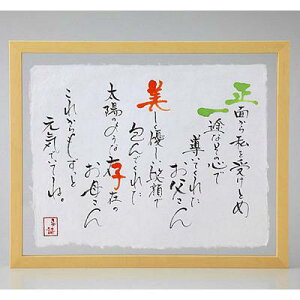 正面から私を受けとめ
一途な心で
導いてくれた
お父さん
美しく優しい笑顔で
包んでくれた
太陽のような存在の
お母さん
これからもずっと
元気でいてね。